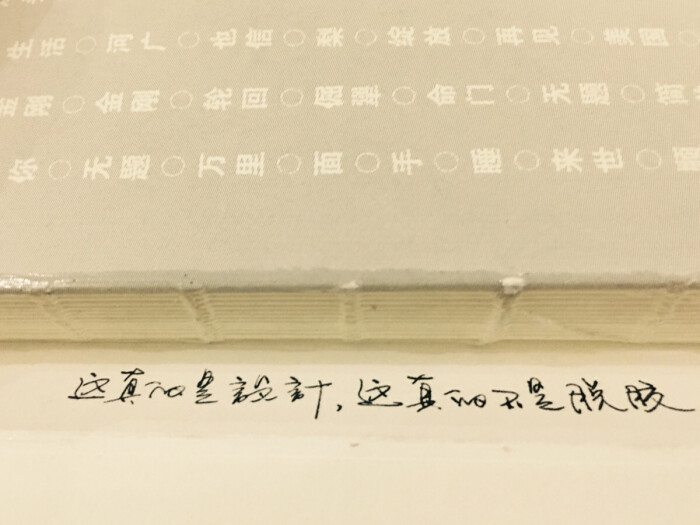 生活○河广○也信○梨○绽放○再见○美国○
金刚○金刚○轮回○倔犟○命门○无题○简
你○无题○万里○面○手○睡○来世○
这真的是設計，这真的不是脱胶